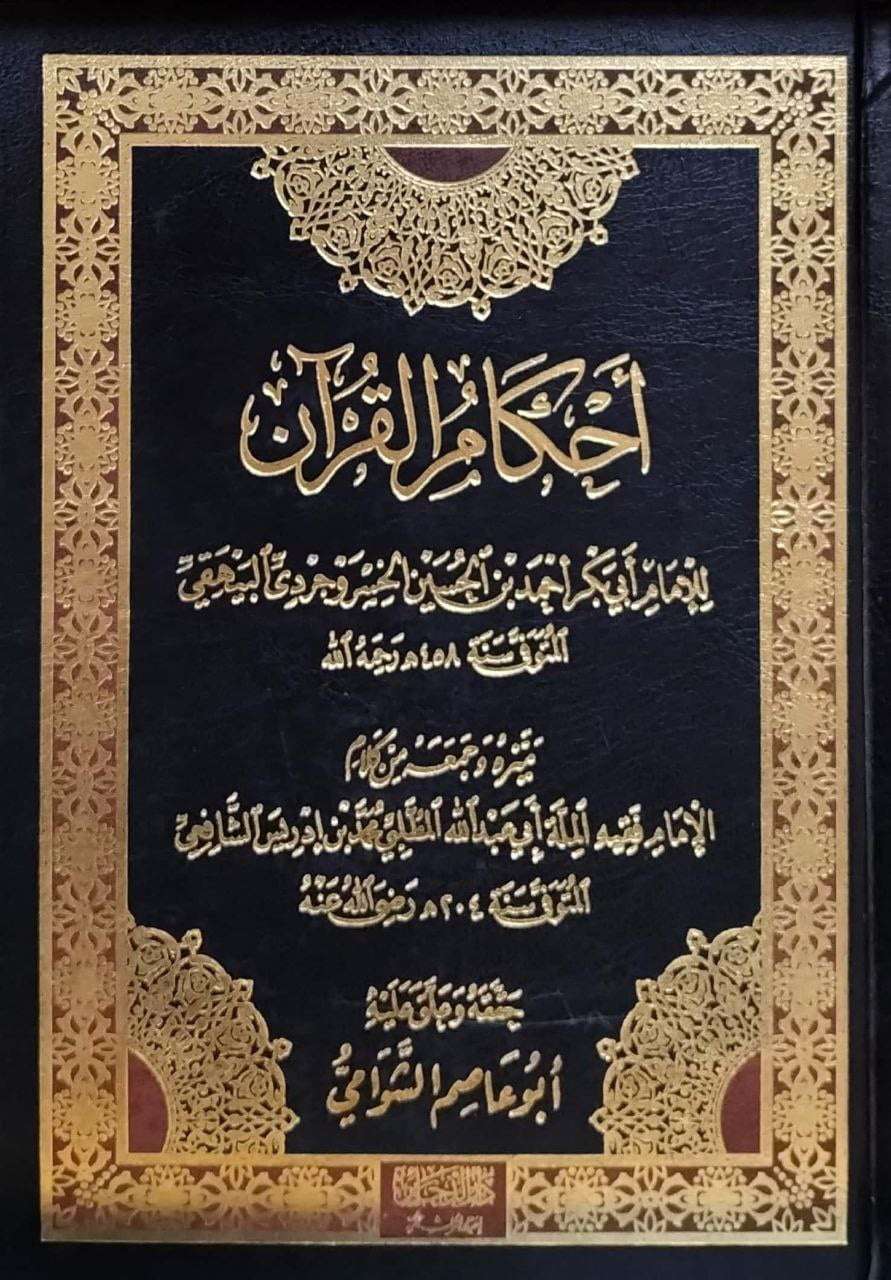 أَحْكَامُ القُرْآن
لِلإِمَامِ أَبِي بَكْر أَحْمَد بْنِ الْحُسَيْنِ الْخُسْرَوْجِرْدِيِّ الْبَيْهَقِيِّ
الْمُتَوَفَّى سَنَة ٤٥٨هـ رَحِمَهُ الله
مَيَّزَهُ وَجَمَعَهُ مِنْ كَلَامِ
الْإِمَامِ فَقِيهِ الْمِلَّةِ أَبِي عَبْدِ اللهِ الْمُطَّلِبِيِّ مُحَمَّد بْنِ إِدْرِيسَ الشَّافِعِيِّ
الْمُتَوَفَّى سَنَة ٢٠٤هـ رَضِيَ اللهُ عَنْهُ
حَقَّقَهُ وَعَلَّقَ عَلَيْهِ
أَبُو عَاصِم الشَّوَامِيُّ